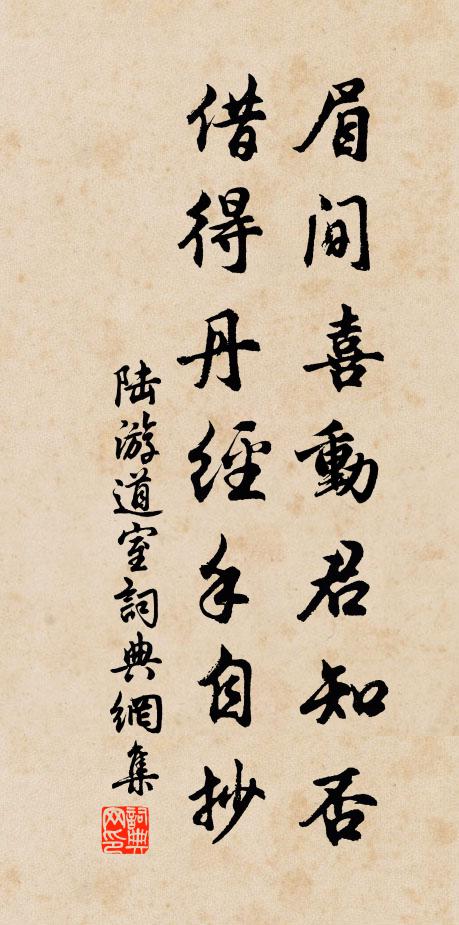 眉間喜動君知否
借得丹經手自抄
陸游道室詞典網集
詞典網印